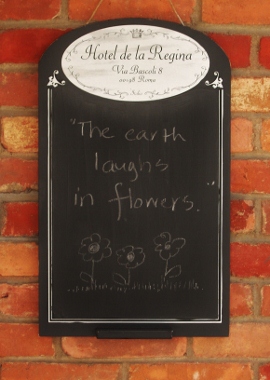 Hotel de la Regina
Via Bucoli 8
00128 Rome
"The earth
laughs
in flowers."